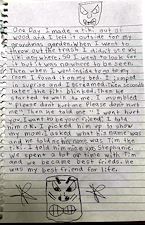 One Day I made a tiki out of
wood and I left it outside for my
grandmas garden. When I went to
throw out the trash I didnt see my
tiki anywhere. So I went to look for
it but it was nowhere to be seen.
Then when I went inside to go to my
room I found it on my bed. I jumped
in surprise and I screamed. Then seconds
later the tiki blinked. Then he
started to walk to me. I mumbled
Please dont hurt me. Please dont hurt
me. Then he told me I wont hurt
you I want to be your friend. I told
him ok. I picked him up to show
my mom. I asked what his name was
and he told me his name was Tim the
tiki. I told him mine was Stephanie.
We spent a lot of time with Tim
and we became best friends. He
was my best friend for life.